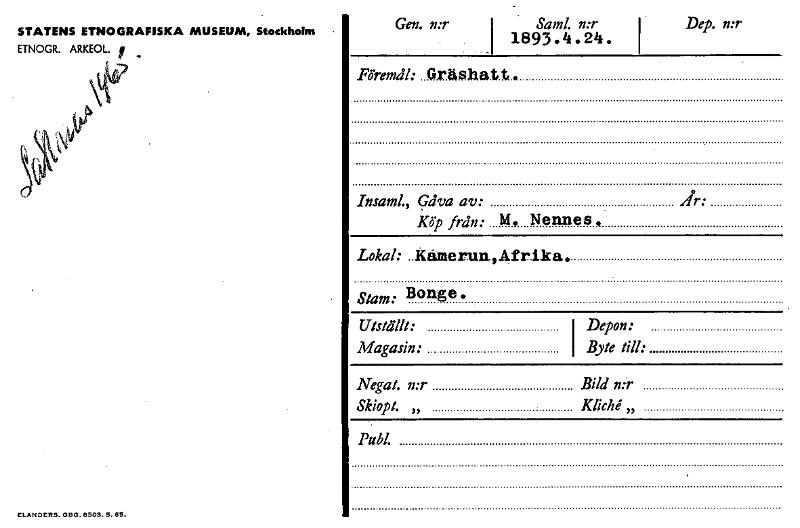 STATENS ETNOGRAFISKA MUSEUM, Stockholm
ETNOGR. ARKEOL.
Saknas 1965.
Gen. n:r
Saml. n:r
1893.4.24.
Dep. n:r
Föremål: Gräshatt.
Insaml., Gåva av:
År:
Köp från: M. Nennes.
Lokal: Kamerun,Afrika.
Stam: Bonge.
Utställt:
Depon:
Magasin:
Byte till:
Negat. n:r
Bild n:r
Skiopt. „
Kliché „
Publ.
ELANDERS. GBG. 6503. 5. 65.